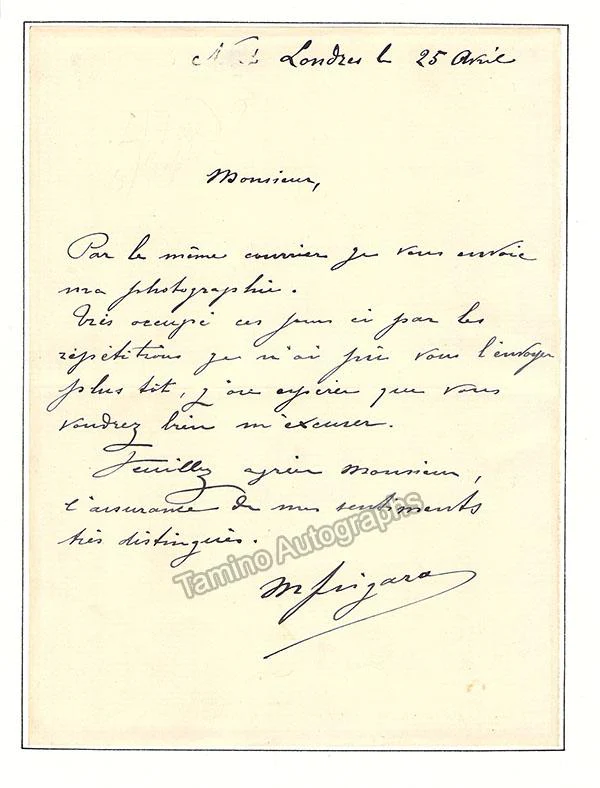 Londres le 25 Avril
Monsieur,
Par le même courrier je vous envoie
ma photographie.
Très occupé ces jours ci par les
répétitions je n'ai pû vous l'envoyer
plus tôt, j'ose espérer que vous
voudrez bien m'excuser.
Veuillez agréer Monsieur,
l'assurance de mes sentiments
très distingués.
Tamino Autographs